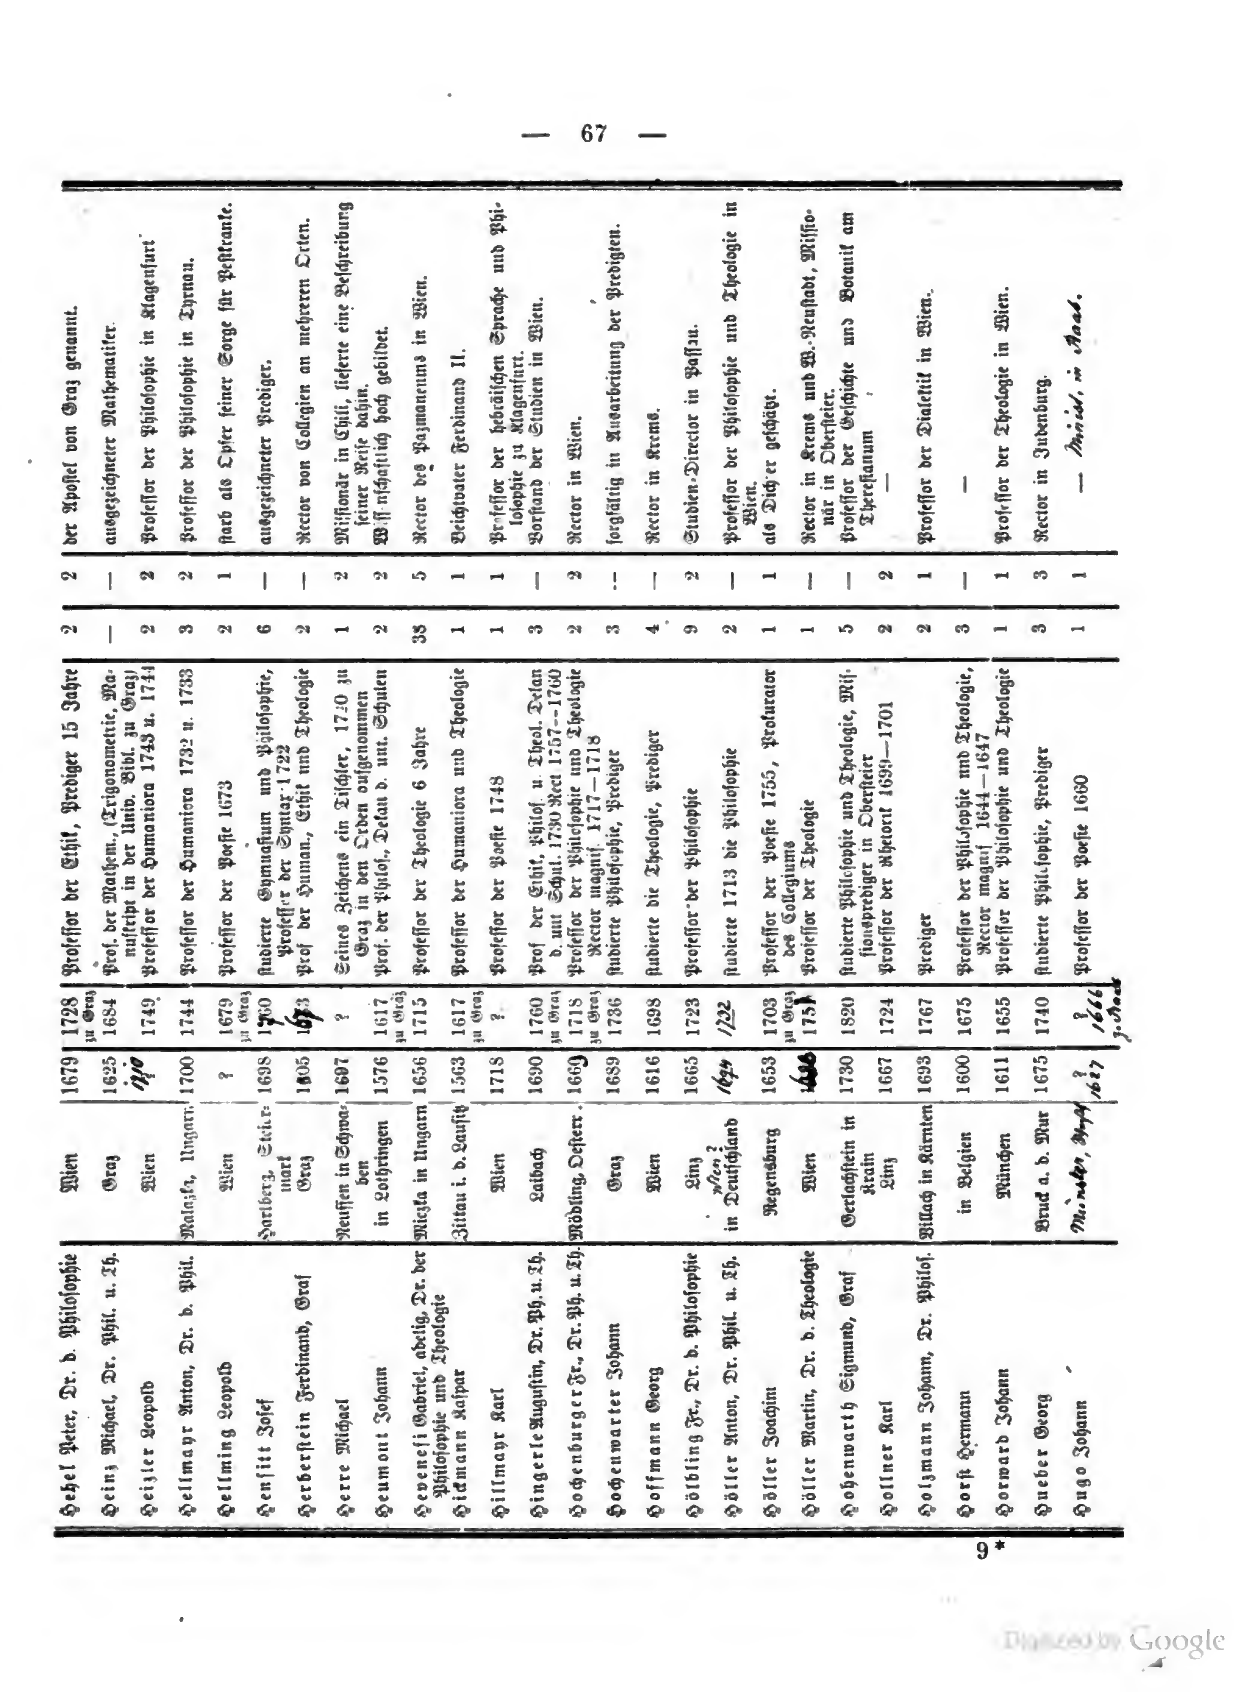 — 67 —
Hehel Peter, Dr. d. Philosophie Wien 1679 1728 zu Graz Professor der Ethik, Prediger 15 Jahre 2 2 der Apostel von Graz genannt.
Heinz Michael, Dr. Phil. u. Th. Graz 1625 1684 Prof. der Mathem., (Trigonometrie, Ma-
nuskript in der Univ. Bibl. zu Graz) — — ausgezeichneter Mathematiker.
Heizler Leopold Wien 1749 Professor der Humaniora 1743 u. 1744 2 2 Professor der Philosophie in Klagenfurt
Hellmayr Anton, Dr. d. Phil. Malazka, Ungarn 1700 1744 Professor der Humaniora 1732 u. 1733 3 2 Professor der Philosophie in Tyrnau.
Hellming Leopold Wien ? 1679 zu Graz Professor der Poesie 1673 2 1 starb als Opfer seiner Sorge für Pestkranke.
Hensitt Josef Hartberg, Steier-
mark 1698 1760 studierte Gymnasium und Philosophie,
Professor der Syntax 1722 6 — ausgezeichneter Prediger.
Herberstein Ferdinand, Graf Graz 1605 1673 Prof der Human., Ethik und Theologie 2 — Rector von Collegien an mehreren Orten.
Herre Michael Neuffen in Schwa-
ben 1697 ? Seines Zeichens ein Tischler, 1720 zu
Graz in den Orden aufgenommen 1 2 Missionär in Chili, lieferte eine Beschreibung
seiner Reise dahin.
Heumont Johann in Lothringen 1576 1617 zu Graz Prof. der Philos., Dekan d. unt. Schulen 2 2 Wissenschaftlich hoch gebildet.
Hevenesi Gabriel, adelig, Dr. der
Philosophie und Theologie Miczka in Ungarn 1656 1715 Professor der Theologie 6 Jahre 38 5 Rector des Pazmaneums in Wien.
Hickmann Kaspar Zittau i. d. Lausitz 1563 1617 zu Graz Professor der Humaniora und Theologie 1 1 Beichtvater Ferdinand II.
Hillmayr Karl Wien 1718 ? Professor der Poesie 1748 1 1 Professor der hebräischen Sprache und Phi-
losophie zu Klagenfurt.
Hingerle Augustin, Dr. Ph. u. Th. Laibach 1690 1760 zu Graz Prof der Ethik, Philos. u. Theol. Dekan
d. unt Schul. 1730 Rect 1757--1760 3 — Vorstand der Studien in Wien.
Hochenburger Fr., Dr. Ph. u. Th. Mödling, Oesterr. 1669 1718 zu Graz Professor der Philosophie und Theologie
Rector magnif. 1717—1718 2 2 Rector in Wien.
Hochenwarter Johann Graz 1689 1736 studierte Philosophie, Prediger 3 — sorgfältig in Ausarbeitung der Predigten.
Hoffmann Georg Wien 1616 1698 studierte die Theologie, Prediger 4 — Rector in Krems.
Hölbling Fr., Dr. d. Philosophie Linz 1665 1723 Professor der Philosophie 9 2 Studien-Director in Passau.
Höller Anton, Dr. Phil. u. Th. Wien?
in Deutschland 1722 studierte 1713 die Philosophie 2 — Professor der Philosophie und Theologie in
Wien.
Höller Joachim Regensburg 1653 1703 zu Graz Professor der Poesie 1755, Prokurator
des Collegiums 1 1 als Dichter geschätzt.
Höller Martin, Dr. d. Theologie Wien 1751 Professor der Theologie 1 — Rector in Krems und W.-Neustadt, Missio-
när in Obersteier.
Hohenwarth Sigmund, Graf Gerlachstein in
Krain 1730 1820 studierte Philosophie und Theologie, Mis-
sionsprediger in Obersteier 5 — Professor der Geschichte und Botanik am
Theresianum
Hollner Karl Linz 1667 1724 Professor der Rhetorik 1699—1701 2 2 —
Holzmann Johann, Dr. Philos. Villach in Kärnten 1693 1767 Prediger 2 1 Professor der Dialektik in Wien.
Horst Hermann in Belgien 1600 1675 Professor der Philosophie und Theologie,
Rector magnif 1644—1647 3 — —
Horward Johann München 1611 1655 Professor der Philosophie und Theologie 1 1 Professor der Theologie in Wien.
Hueber Georg Bruck a. d. Mur 1675 1740 studierte Philosophie, Prediger 3 3 Rector in Judenburg.
Hugo Johann Münster, ? 1627 ? 1666 z. Raab Professor der Poesie 1660 1 1 — Minist. in Raab.
9*
Digitized by Google